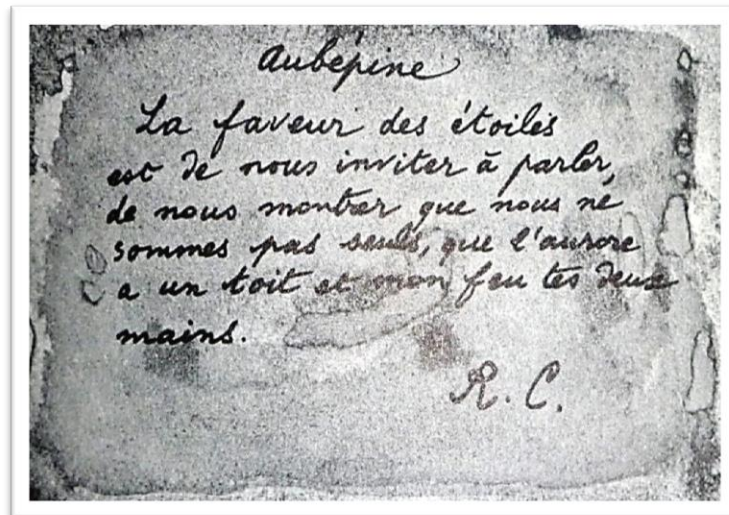 Aubépine
La faveur des étoiles
est de nous inviter à parler,
de nous montrer que nous ne
sommes pas seuls, que l'aurore
a un toit et mon feu tes deux
mains.
R. C.